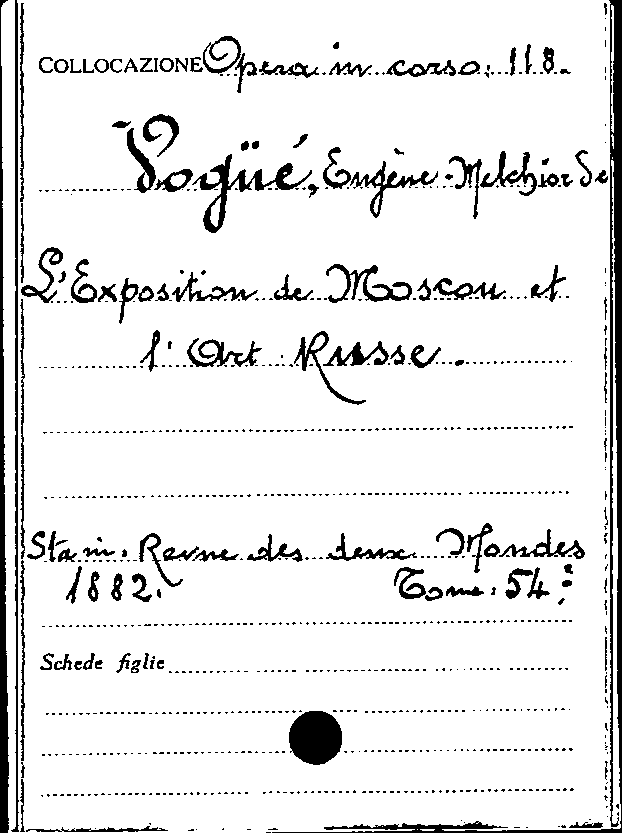 COLLOCAZIONE Opera in corso. 118.
Vogüé, Eugène-Melchior de
L'Exposition de Moscou et
l'Art Russe.
Stam. Revue des deux Mondes
1882. Tome. 54.e
Schede figlie